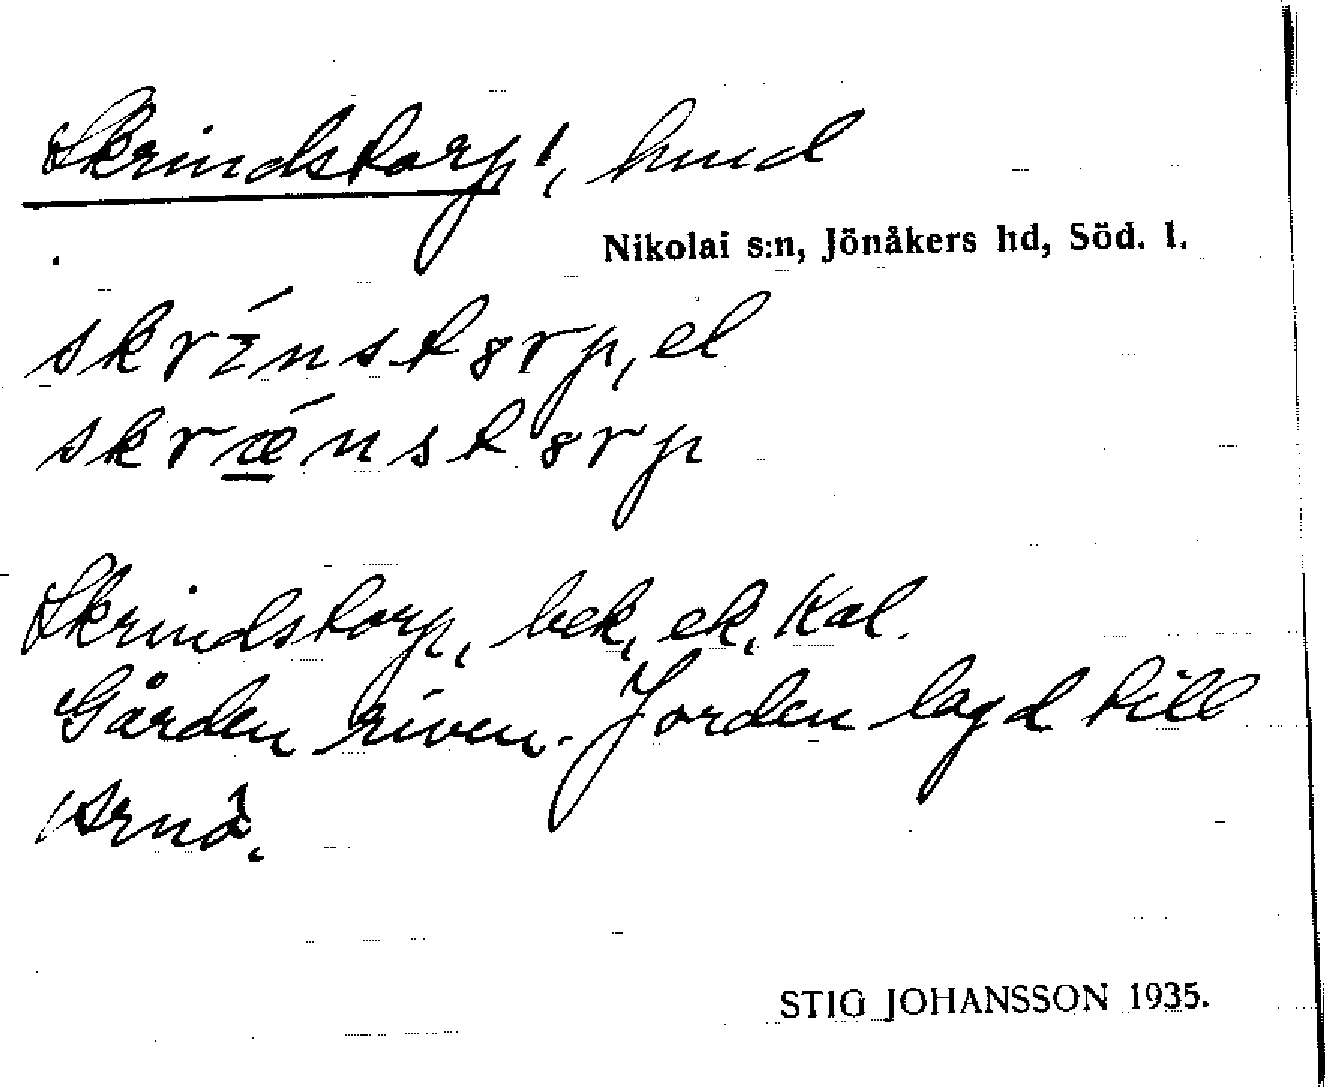 Skrindstorp¹, hmd
Nikolai s:n, Jönåkers hd, Söd. l.
skrɪ́nstȣrp, el
skrǽnstȣrp
Skrindstorp, bek, ek, Kal.
Gården riven. Jorden lagd till
Arnö.
STIG JOHANSSON 1935.